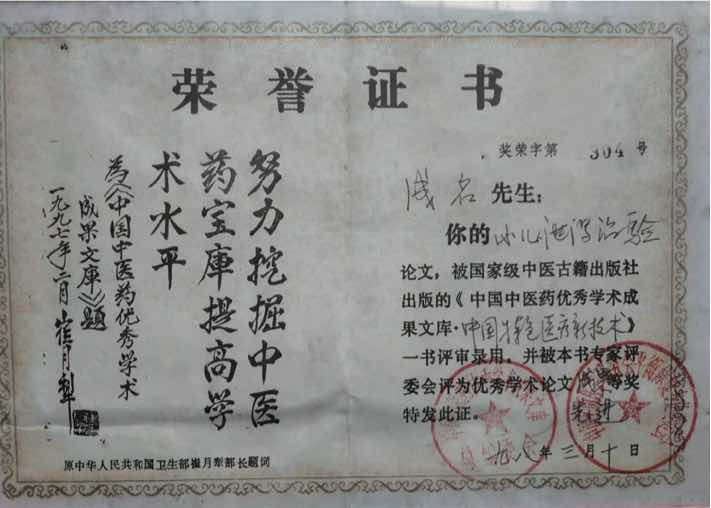 荣誉证书
努力挖掘中医
药宝库提高学
术水平
为《中国中医药优秀学术
成果文库》题
一九九七年二月 崔月犁
原中华人民共和国卫生部崔月犁部长题词
奖荣字第 304 号
成名 先生:
你的 小儿泄泻治验
论文,被国家级中医古籍出版社
出版的《中国中医药优秀学术成
果文库·中国特色医疗新技术》
一书评审录用,并被本书专家评
委会评为优秀学术论文 等奖
特发此证。
九八年三月十日